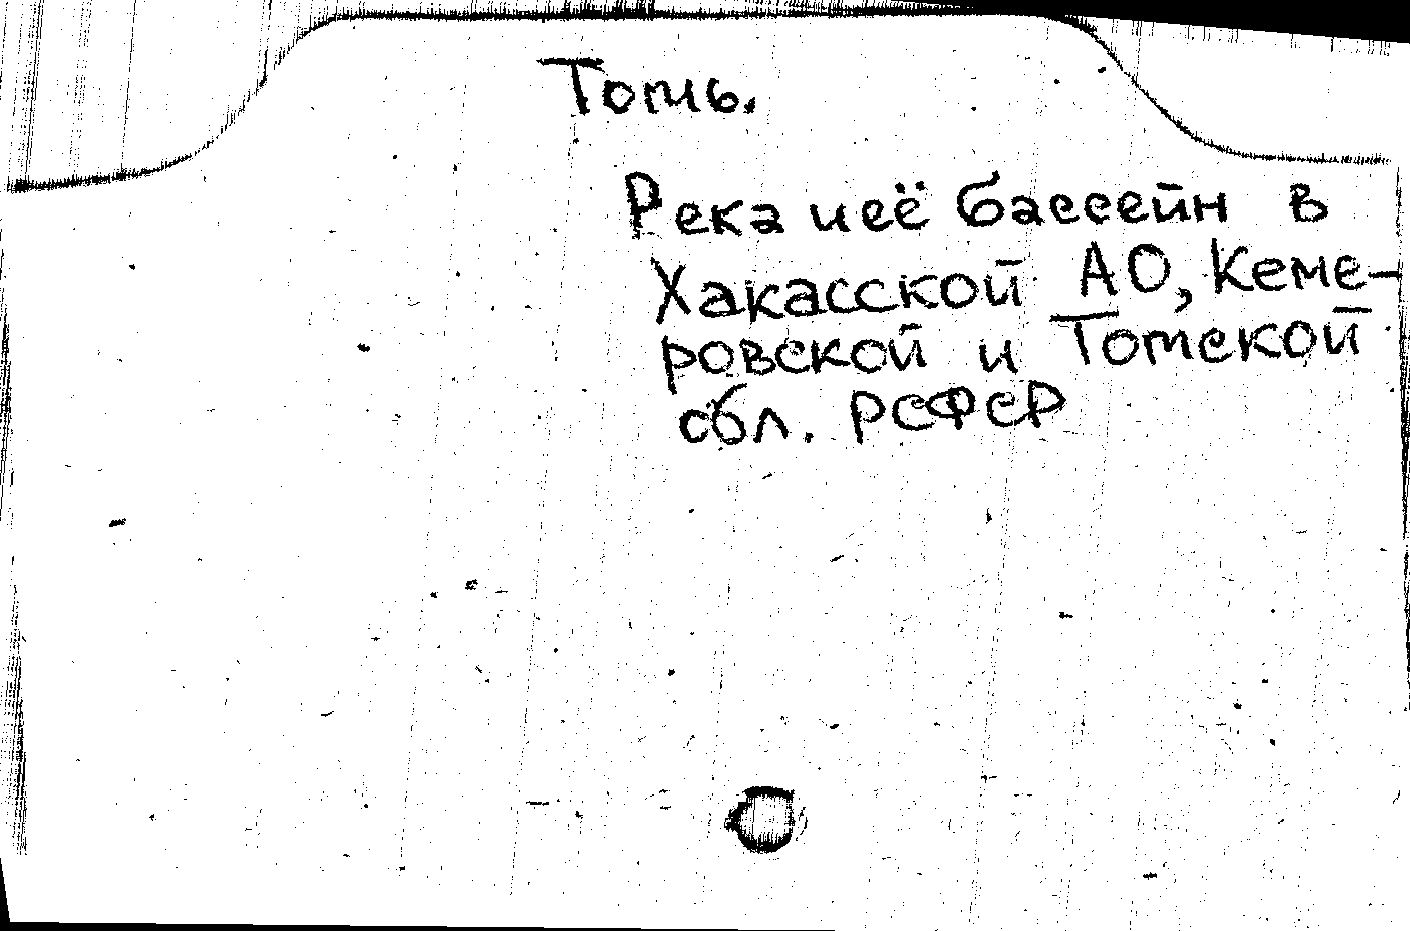 Томь.
Река и её бассейн в
Хакасской АО, Кеме-
ровской и Томской
обл. РСФСР